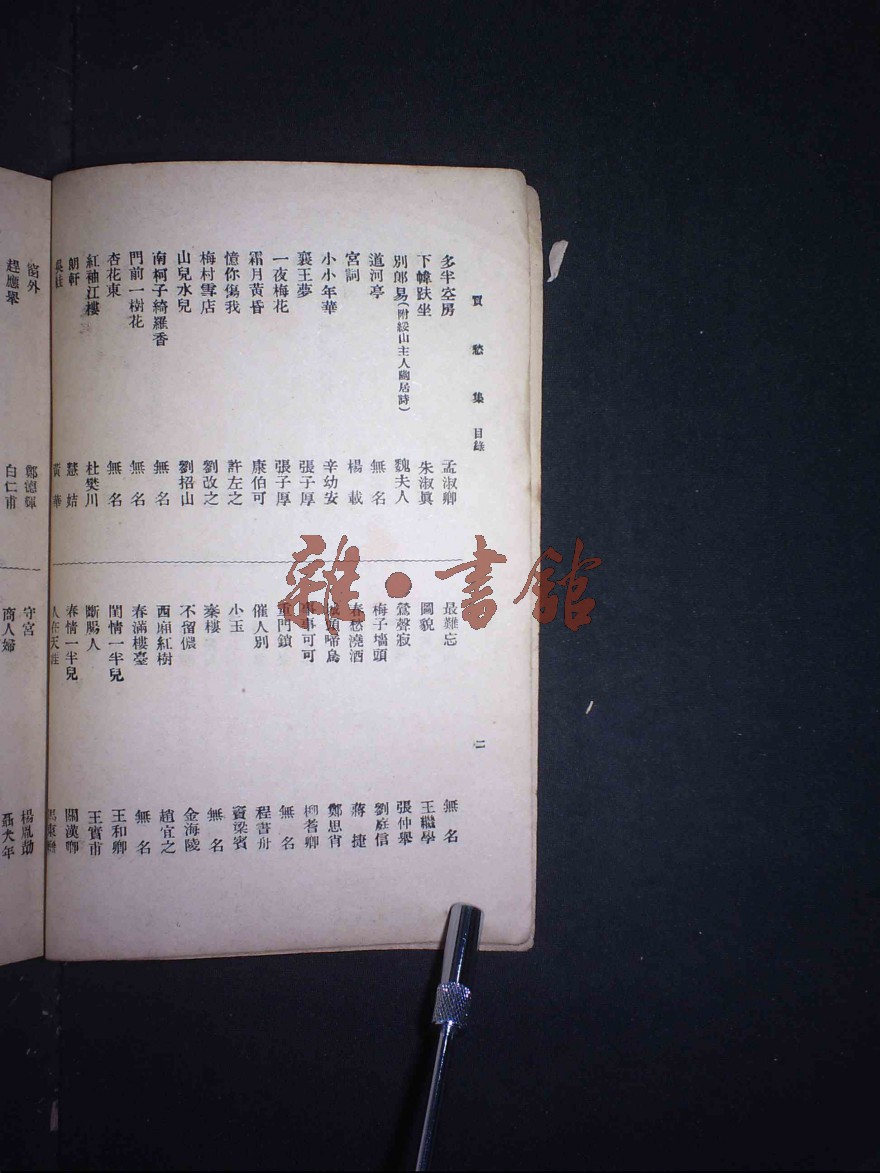 買愁集 目錄
二
多半空房 孟淑卿
下幃趺坐 朱淑眞
別郎易(附綏山主人幽居詩) 魏夫人
道河亭 無名
宮詞 楊載
小小年華 辛幼安
襄王夢 張子厚
一夜梅花 張子厚
霜月黃昏 康伯可
憶你傷我 許左之
梅村雪店 劉改之
山兒水兒 劉招山
南柯子綺羅香 無名
門前一樹花 無名
杏花東 無名
紅袖江樓 杜樊川
朗軒 慧姞
黃華
最難忘 無名
圖貌 王繼學
鶯聲寂 張仲舉
梅子墻頭 劉庭信
春愁澆酒 蔣捷
頭啼鳥 鄭思肖
事事可可 柳耆卿
重門鎖 無名
催人別 程書舟
小玉 竇梁賓
秦樓 無名
不留儂 金海陵
西廂紅樹 趙宜之
春滿樓臺 無名
閨情一半兒 王和卿
斷腸人 王實甫
春情一半兒 關漢卿
人在天涯 馬東籬
窗外 鄭德輝
趙應舉 白仁甫
守宮 楊胤勛
商人婦 聶大年
雜·書館